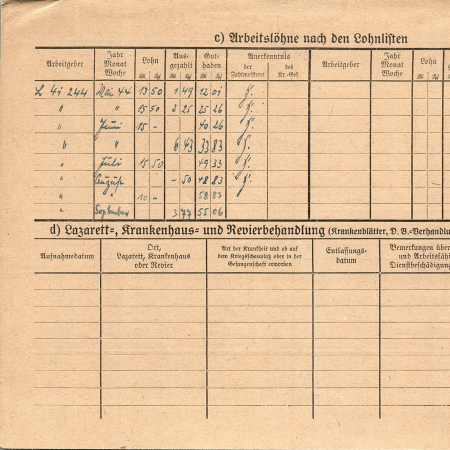 c) Arbeitslöhne nach den Lohnlisten
Arbeitgeber Jahr Monat Woche Lohn RM Rpf Ausgezahlt RM Rpf Guthaben RM Rpf Anerkenntnis der Zahlmeisterei des Kr.-Gef. Arbeitgeber Jahr Monat Woche Lohn RM Rpf
L 41 244 Mai 44 13 50 1 49 12 01
" " 15 50 2 25 25 26
" Juni 15 - 40 26
" " 6 43 33 83
" Juli 15 50 49 33
" August - 50 48 83
" " 10 - 58 83
" September 3 77 55 06
d) Lazarett-, Krankenhaus- und Revierbehandlung (Krankenblätter, D. B.-Verhandlu
Aufnahmedatum Ort, Lazarett, Krankenhaus oder Revier Art der Krankheit und ob auf dem Kriegsschauplatz oder in der Gefangenschaft erworben Entlassungsdatum Bemerkungen über und Arbeitsfäh Dienstbeschädigung